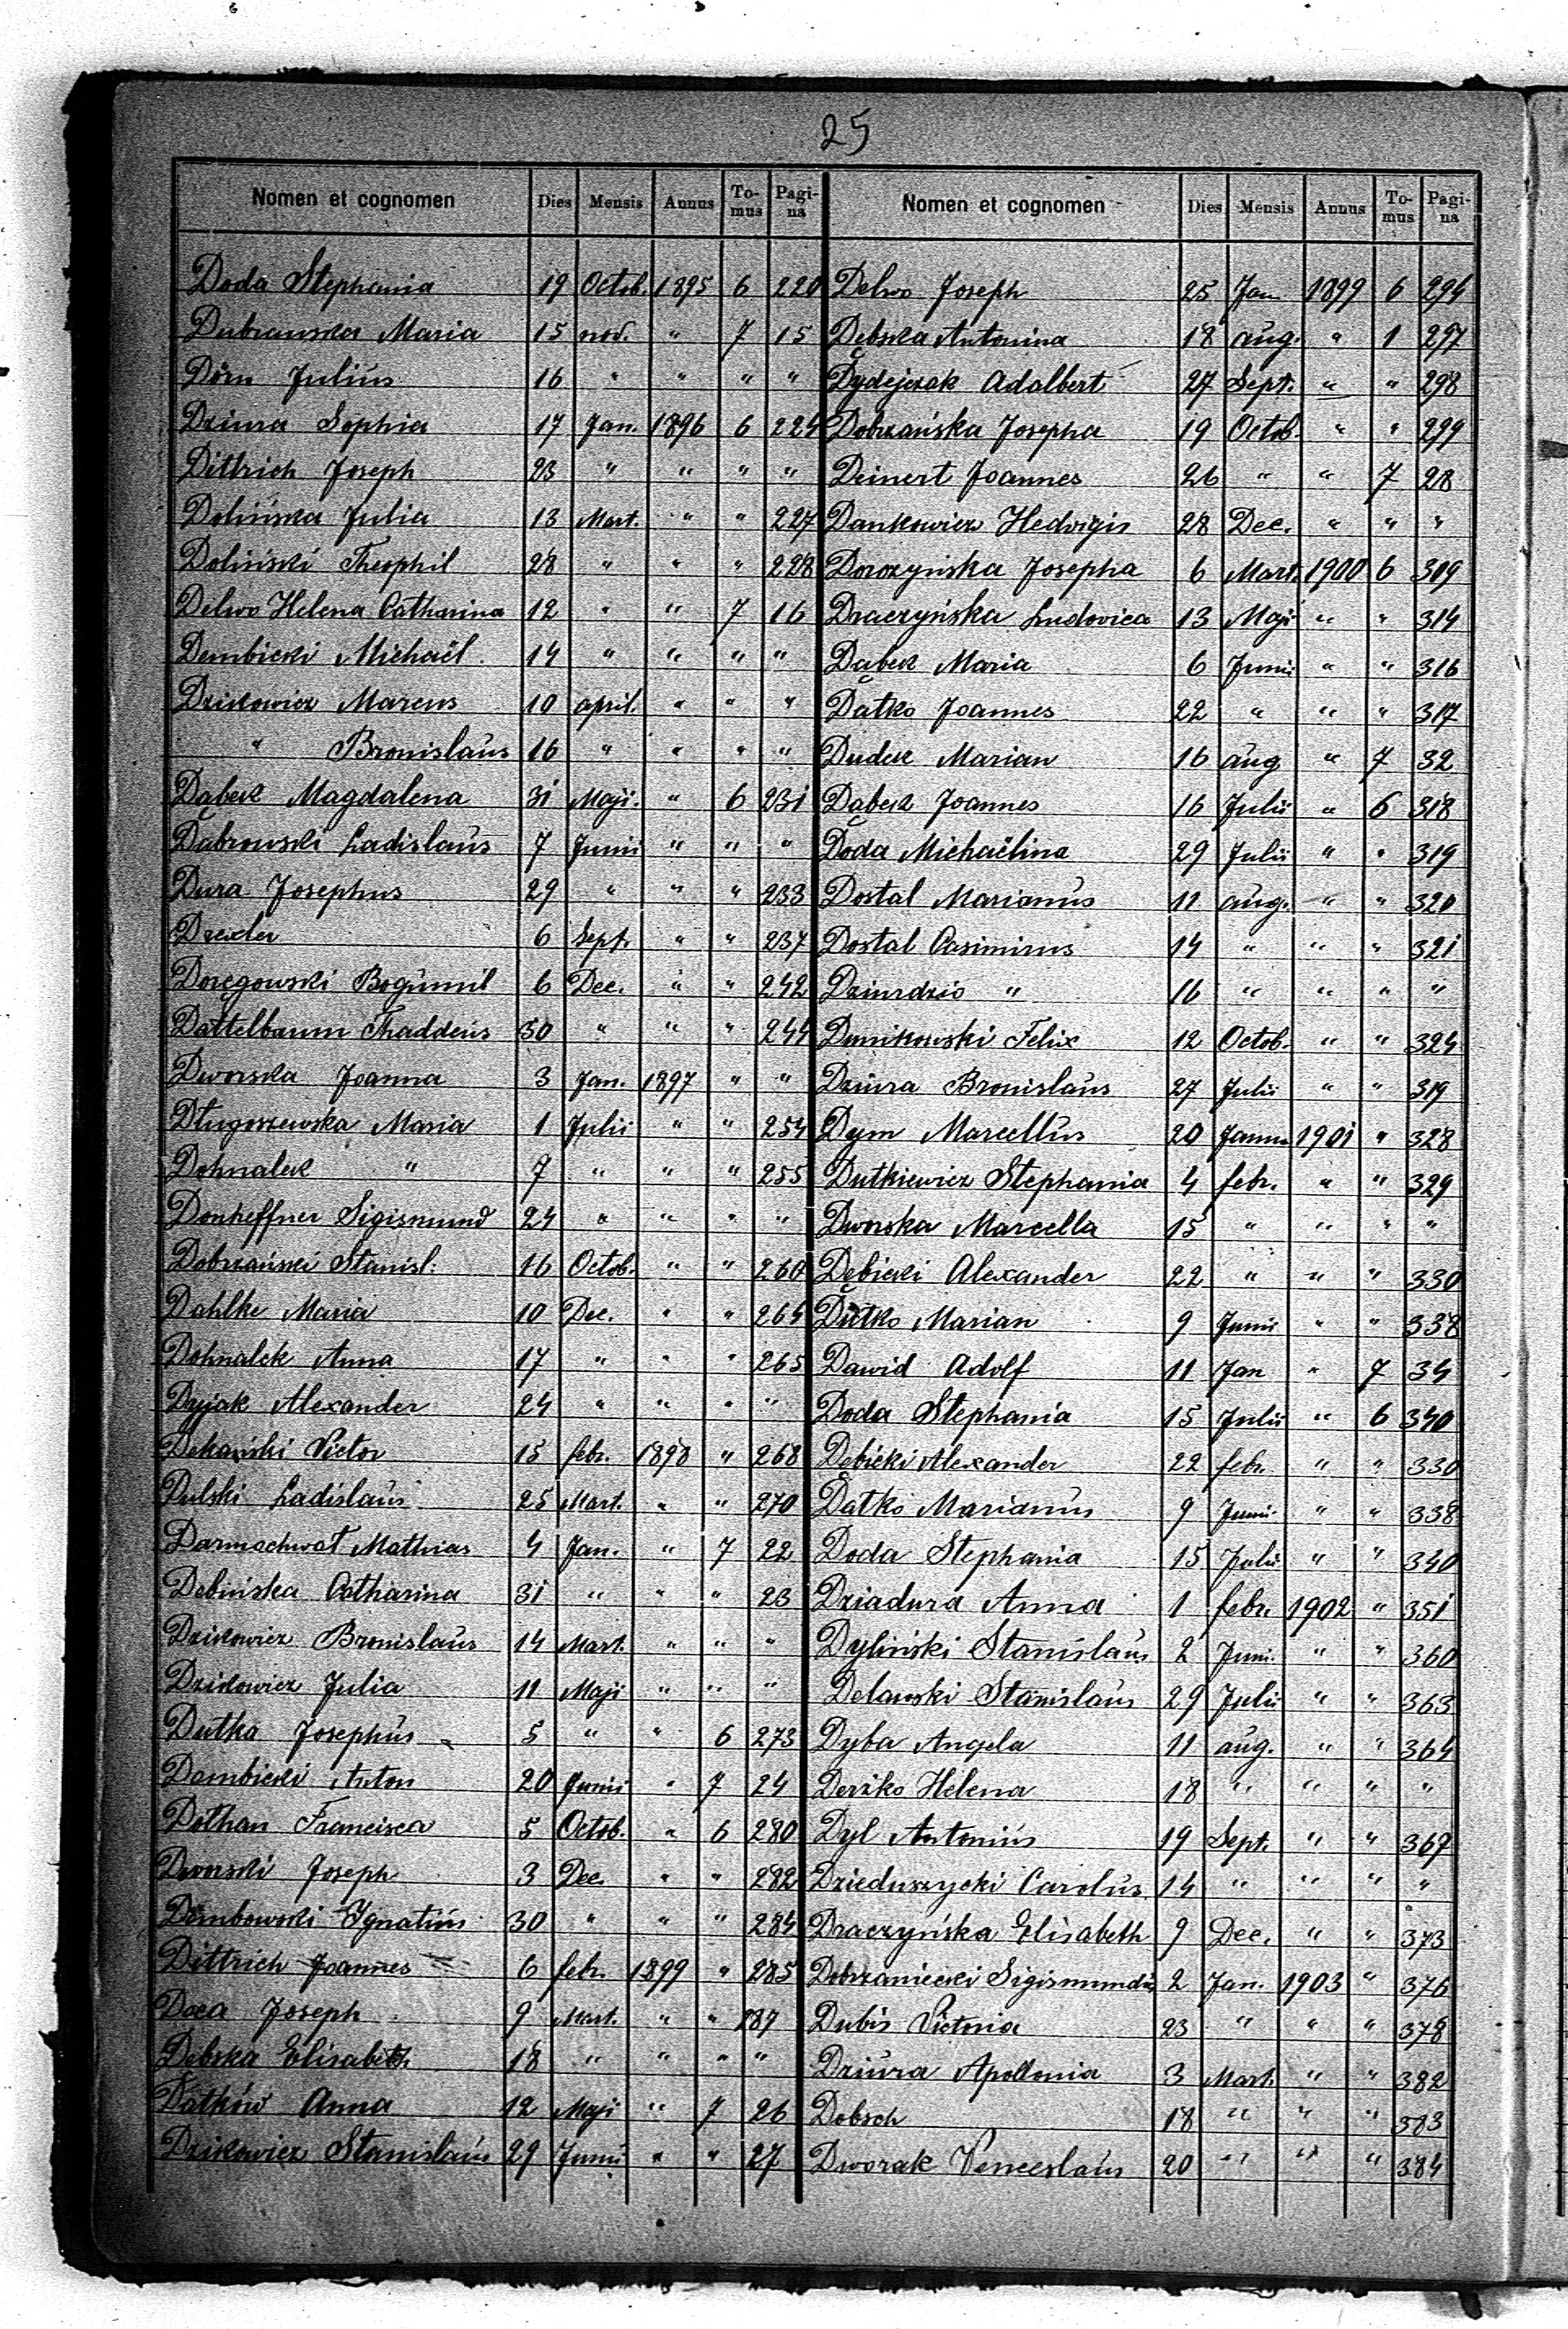 25
Nomen et cognomen Dies Mensis Annus To-mus Pagi-na
Doda Stephania 19 Octob. 1895 6 220
Dubrawska Maria 15 nov. " 7 15
Dörn Julius 16 " " " "
Dziura Sophia 17 Jan. 1896 6 224
Dittrich Joseph 23 " " " "
Dolińska Julia 13 Mart. " " 227
Doliński Theophil 28 " " " 228
Delwo Helena Catharina 12 " " 7 16
Dembicki Michaël 14 " " " "
Dzikowicz Marcus 10 april. " " "
" Bronislaus 16 " " " "
Dąbek Magdalena 31 Maji. " 6 231
Dąbrowski Ladislaus 7 Junii " " "
Dura Josephus 29 " " " 233
Drexler 6 Sept. " " 237
Doręgowski Bogumil 6 Dec. " " 242
Dattelbaum Thaddeus 30 " " " 244
Dworska Joanna 3 Jan. 1897 " "
Długoszewska Maria 1 Julii " " 254
Dohnalek " 7 " " " 255
Donheffner Sigismund 24 " " " "
Dobrzański Stanisl: 16 Octob. " " 260
Dahlke Maria 10 Dec. " " 264
Dohnalek Anna 17 " " " 265
Dyjak Alexander 24 " " " "
Dekański Victor 15 febr. 1898 " 268
Dulski Ladislaus 25 Mart. " " 270
Darmochwat Mathias 4 Jan. " 7 22
Debińska Catharina 31 " " " 23
Dzikowicz Bronislaus 14 Mart. " " "
Dzikowicz Julia 11 Maji " " "
Dutka Josephus 5 " " 6 273
Dembicki Anton 20 Junii " 7 24
Dothan Francisca 5 Octob. " 6 280
Dworski Joseph 3 Dec. " " 282
Dembowski Ignatius 30 " " " 284
Dittrich Joannes 6 febr. 1899 " 285
Doca Joseph 9 Mart. " " 287
Debska Elisabeth 18 " " " "
Datków Anna 12 Maji " 7 26
Dzikowicz Stanislaus 29 Junii " " 27
Nomen et cognomen Dies Mensis Annus To-mus Pagi-na
Delwo Joseph 25 Jan 1899 6 294
Dębska Antonina 18 aug. " 1 297
Dydejczak Adalbert 27 Sept. " " 298
Dobrzańska Josepha 19 Octob. " " 299
Deinert Joannes 26 " " 7 28
Dankowicz Hedvigis 28 Dec. " " "
Dorozyńska Josepha 6 Mart. 1900 6 309
Draczyńska Ludovica 13 Maji " " 314
Dąbek Maria 6 Junii " " 316
Datko Joannes 22 " " " 317
Dudek Marian 16 aug " 7 32
Dąbek Joannes 16 Julii " 6 318
Doda Michaëlina 29 Julii " " 319
Dostal Marianus 11 aug. " " 320
Dostal Casimirus 14 " " " 321
Dziurdzio " 16 " " " "
Dunikowski Felix 12 Octob. " " 324
Dziura Bronislaus 27 Julii " " 319
Dym Marcellus 20 Janu 1901 " 328
Dutkiewicz Stephania 4 febr. " " 329
Dworska Marcella 15 " " " "
Dębicki Alexander 22 " " " 330
Datko Marian 9 Junii " " 338
Dawid Adolf 11 Jan " 7 34
Doda Stephania 15 Julii " 6 340
Dębicki Alexander 22 febr. " " 330
Datko Marianus 9 Junii " " 338
Doda Stephania 15 Julii " " 340
Dziadura Anna 1 febr. 1902 " 351
Dyliński Stanislaus 2 Juni. " " 360
Delawski Stanislaus 29 Julii " " 363
Dyba Angela 11 aug. " " 364
Derżko Helena 18 " " " "
Dyl Antonius 19 Sept. " " 367
Dzieduszycki Carolus 14 " " " "
Draczyńska Elisabeth 9 Dec. " " 373
Dobrzaniecki Sigismundus 2 Jan. 1903 " 376
Dubis Victoria 23 " " " 378
Dziura Apollonia 3 Mart. " " 382
Dobsch 18 " " " 383
Dworak Venceslaus 20 " " " 384